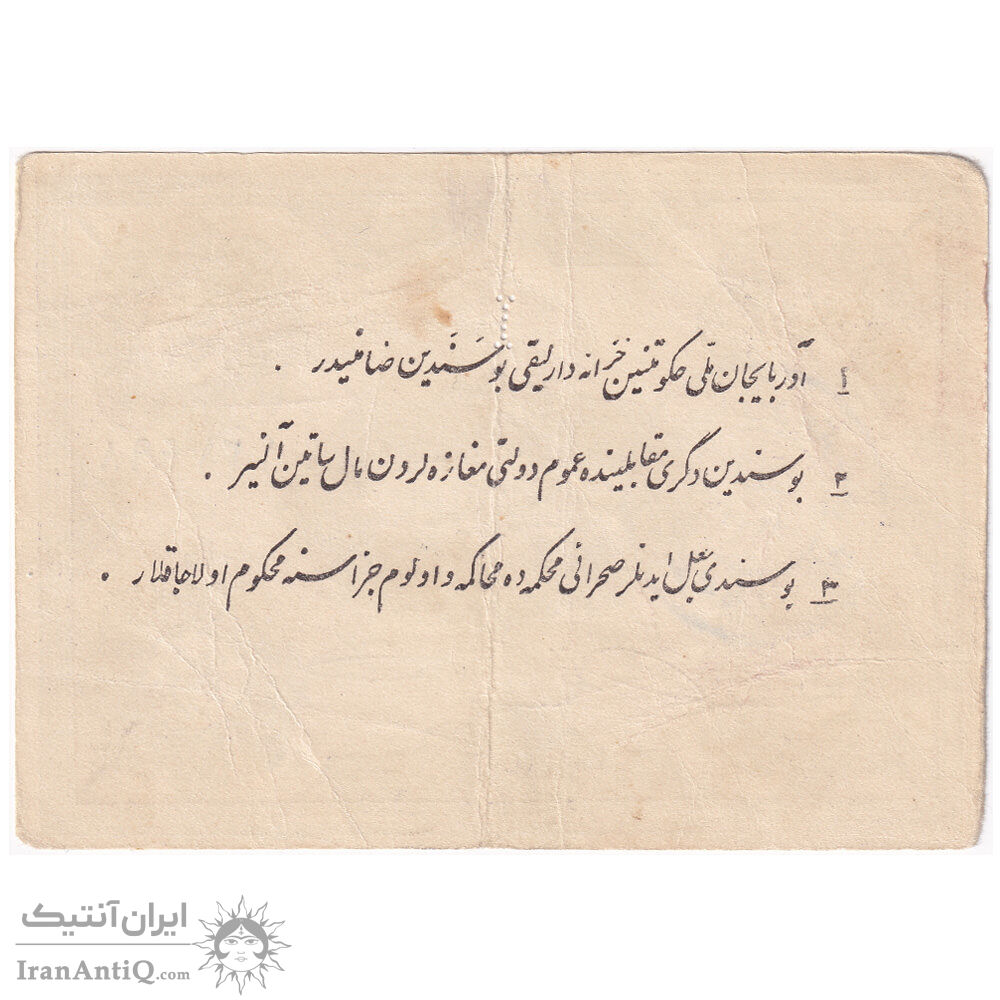 ۱ آذربایجان ملی حکومتنین خزانه دارلیقی بو سندین ضامنیدر .
۲ بو سندین دگری مقابلینده عموم دولتی مغازه لردن مال ساتین آلنیر .
۳ بو سندی جعل ایدنلر صحرائی محکمه ده محاکمه و اولوم جزاسنه محکوم اولاجاقلار .
ایران آنتیک
IranAntiQ.com